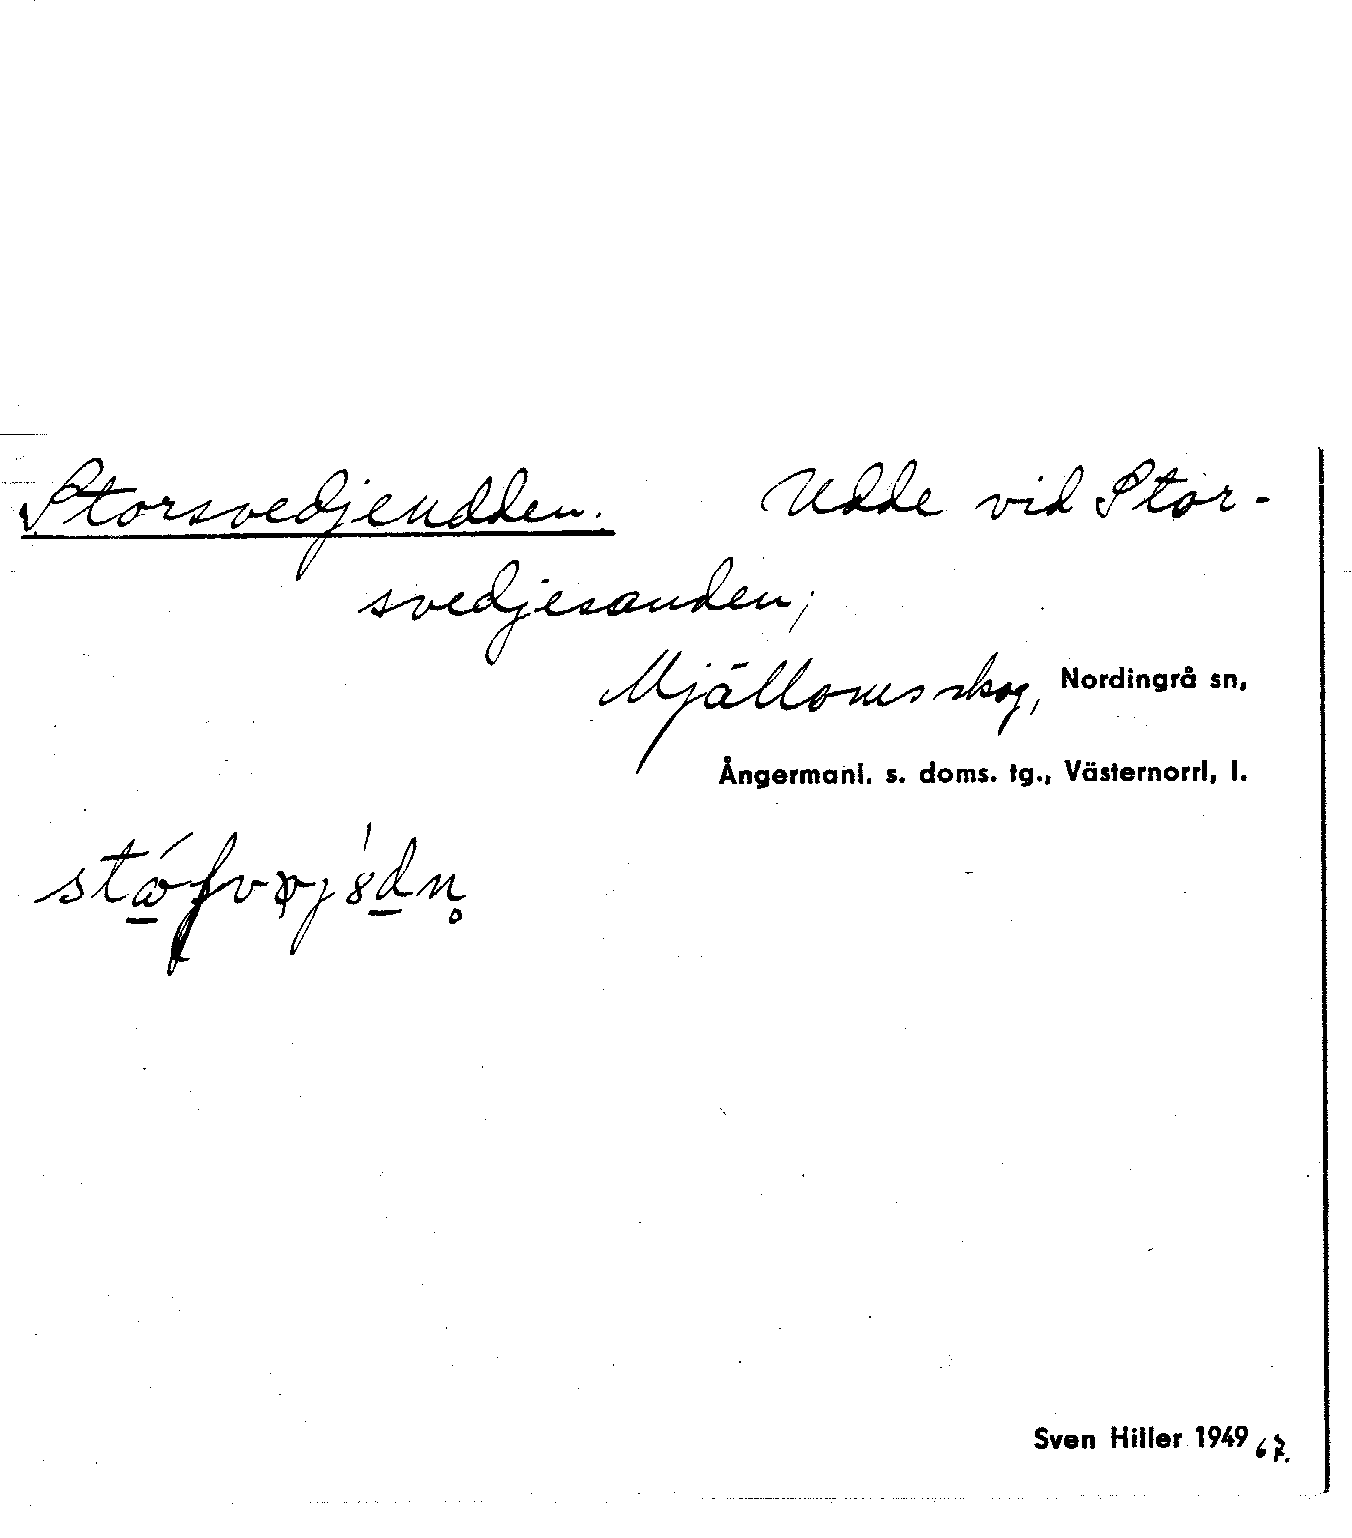 Storsvedjeudden. Udde vid Stor-
svedjesanden;
Mjälloms skog, Nordingrå sn,
Ångermanl. s. doms. tg., Västernorrl, l.
Sven Hiller 1949 67.